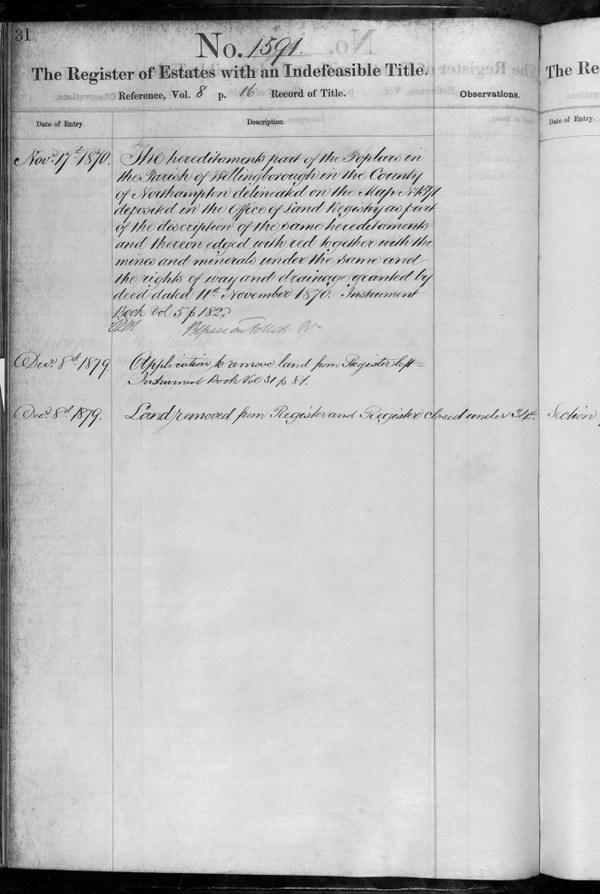 31
No. 1591.
The Register of Estates with an Indefeasible Title.
Reference, Vol. 8 p. 16 Record of Title.
Observations.
Date of Entry
Description.
Novr. 17th 1870.
The hereditaments part of the Poplars in
the Parish of Wellingborough in the County
of Northampton delineated on the Map No. 1591
deposited in the Office of Land Registry as part
of the description of the same hereditaments
and thereon edged with red together with the
mines and minerals under the same and
the rights of way and drainage granted by
deed dated 11th November 1870. Instrument
Book Vol. 5 p 182.
Decr. 8th 1879
Application to remove land from Register left =
Instrument Book Vol 31 p 81.
Decr. 8th 1879.
Land removed from Register and Register closed under 34th Section
The Re
Date of Entry.